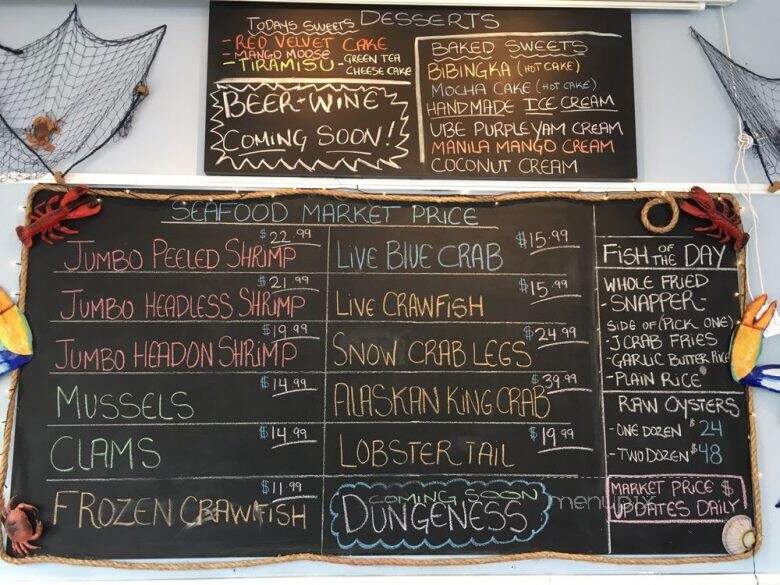 DESSERTS
TODAYS SWEETS
- RED VELVET CAKE
- MANGO MOOSE
- TIRAMISU - GREEN TEA
CHEESE CAKE
BEER-WINE
COMING SOON!
BAKED SWEETS
BIBINGKA (HOT CAKE)
MOCHA CAKE (HOT CAKE)
HANDMADE ICE CREAM
UBE PURPLE YAM CREAM
MANILA MANGO CREAM
COCONUT CREAM
SEAFOOD MARKET PRICE
JUMBO PEELED SHRIMP $22.99
JUMBO HEADLESS SHRIMP $21.99
JUMBO HEADON SHRIMP $19.99
MUSSELS $14.99
CLAMS $14.99
FROZEN CRAWFISH $11.99
LIVE BLUE CRAB $15.99
LIVE CRAWFISH $15.99
SNOW CRAB LEGS $24.99
ALASKAN KING CRAB $39.99
LOBSTER TAIL $19.99
COMING SOON
DUNGENESS
FISH OF THE DAY
WHOLE FRIED
- SNAPPER -
SIDE OF (PICK ONE)
- J CRAB FRIES
- GARLIC BUTTER RICE
- PLAIN RICE
RAW OYSTERS
- ONE DOZEN $24
- TWO DOZEN $48
MARKET PRICE $
UPDATES DAILY
menupix